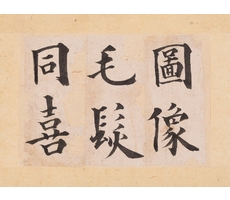 圖像
毛髮
同喜